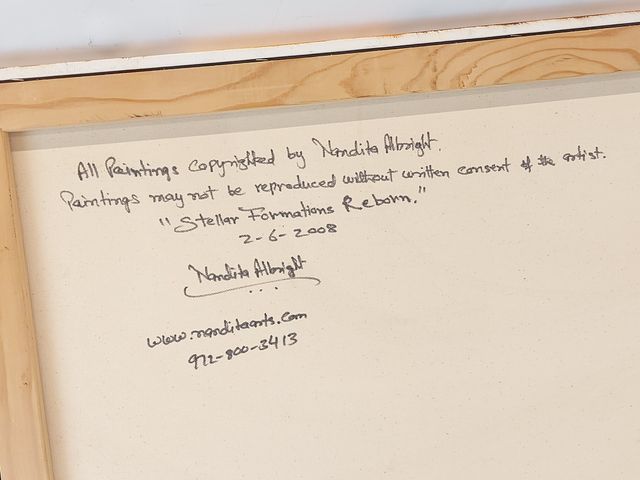 All Paintings copyrighted by Nandita Albright.
Paintings may not be reproduced without written consent of the artist.
"Stellar Formations Reborn."
2-6-2008
Nandita Albright
www.nanditaarts.com
972-800-3413